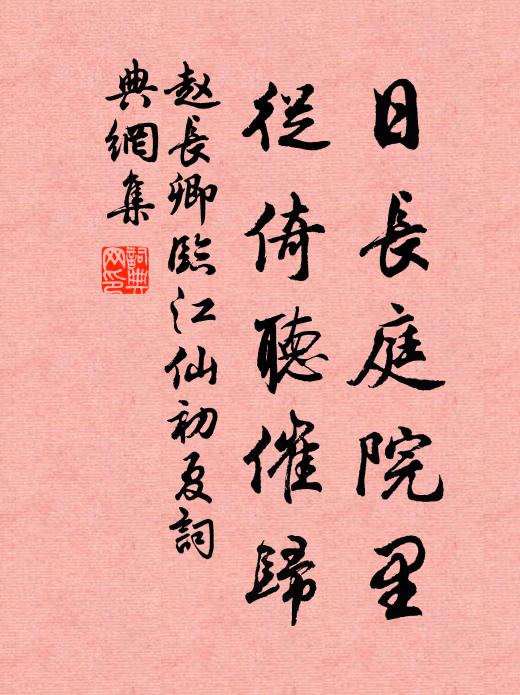 日長庭院里
從倚聽催歸
赵長卿臨江仙初夏詞
典網集
詞典网印